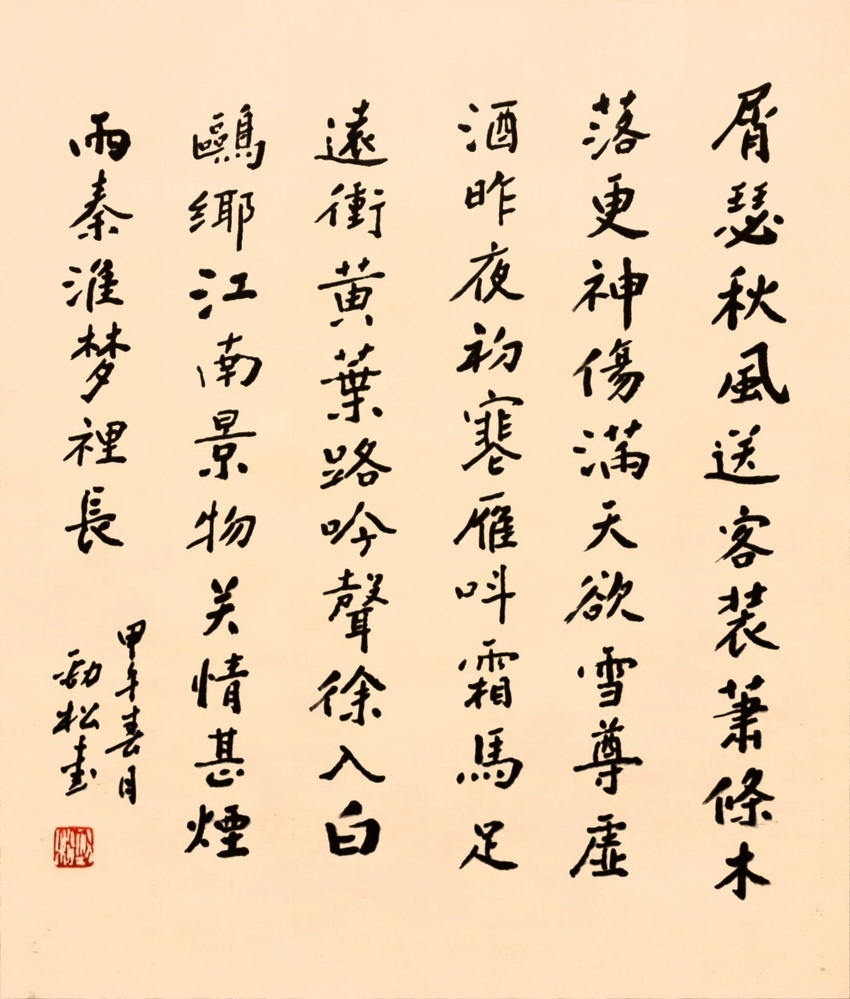 屑瑟秋風送客裝蕭條木
落更神傷滿天欲雪尊虛
酒昨夜初寒雁叫霜馬足
遠衝黄葉路吟聲徐入白
鷗鄉江南景物关情甚煙
雨秦淮梦裡長
甲午春月
勁松書